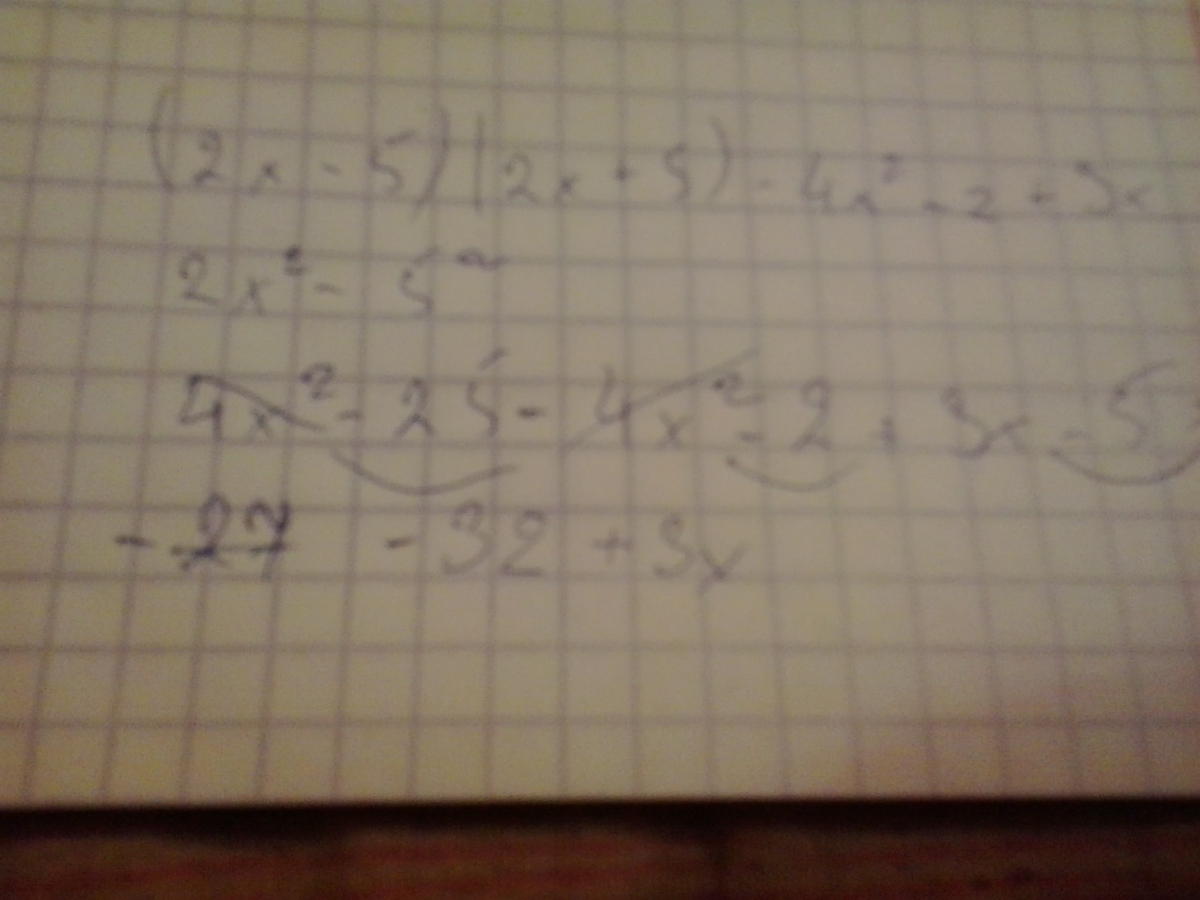 (2x - 5)(2x + 5) - 4x² - 2 + 3x
2x² - 5²
4x² - 25 - 4x² - 2 + 3x - 5
- 27 - 32 + 3x